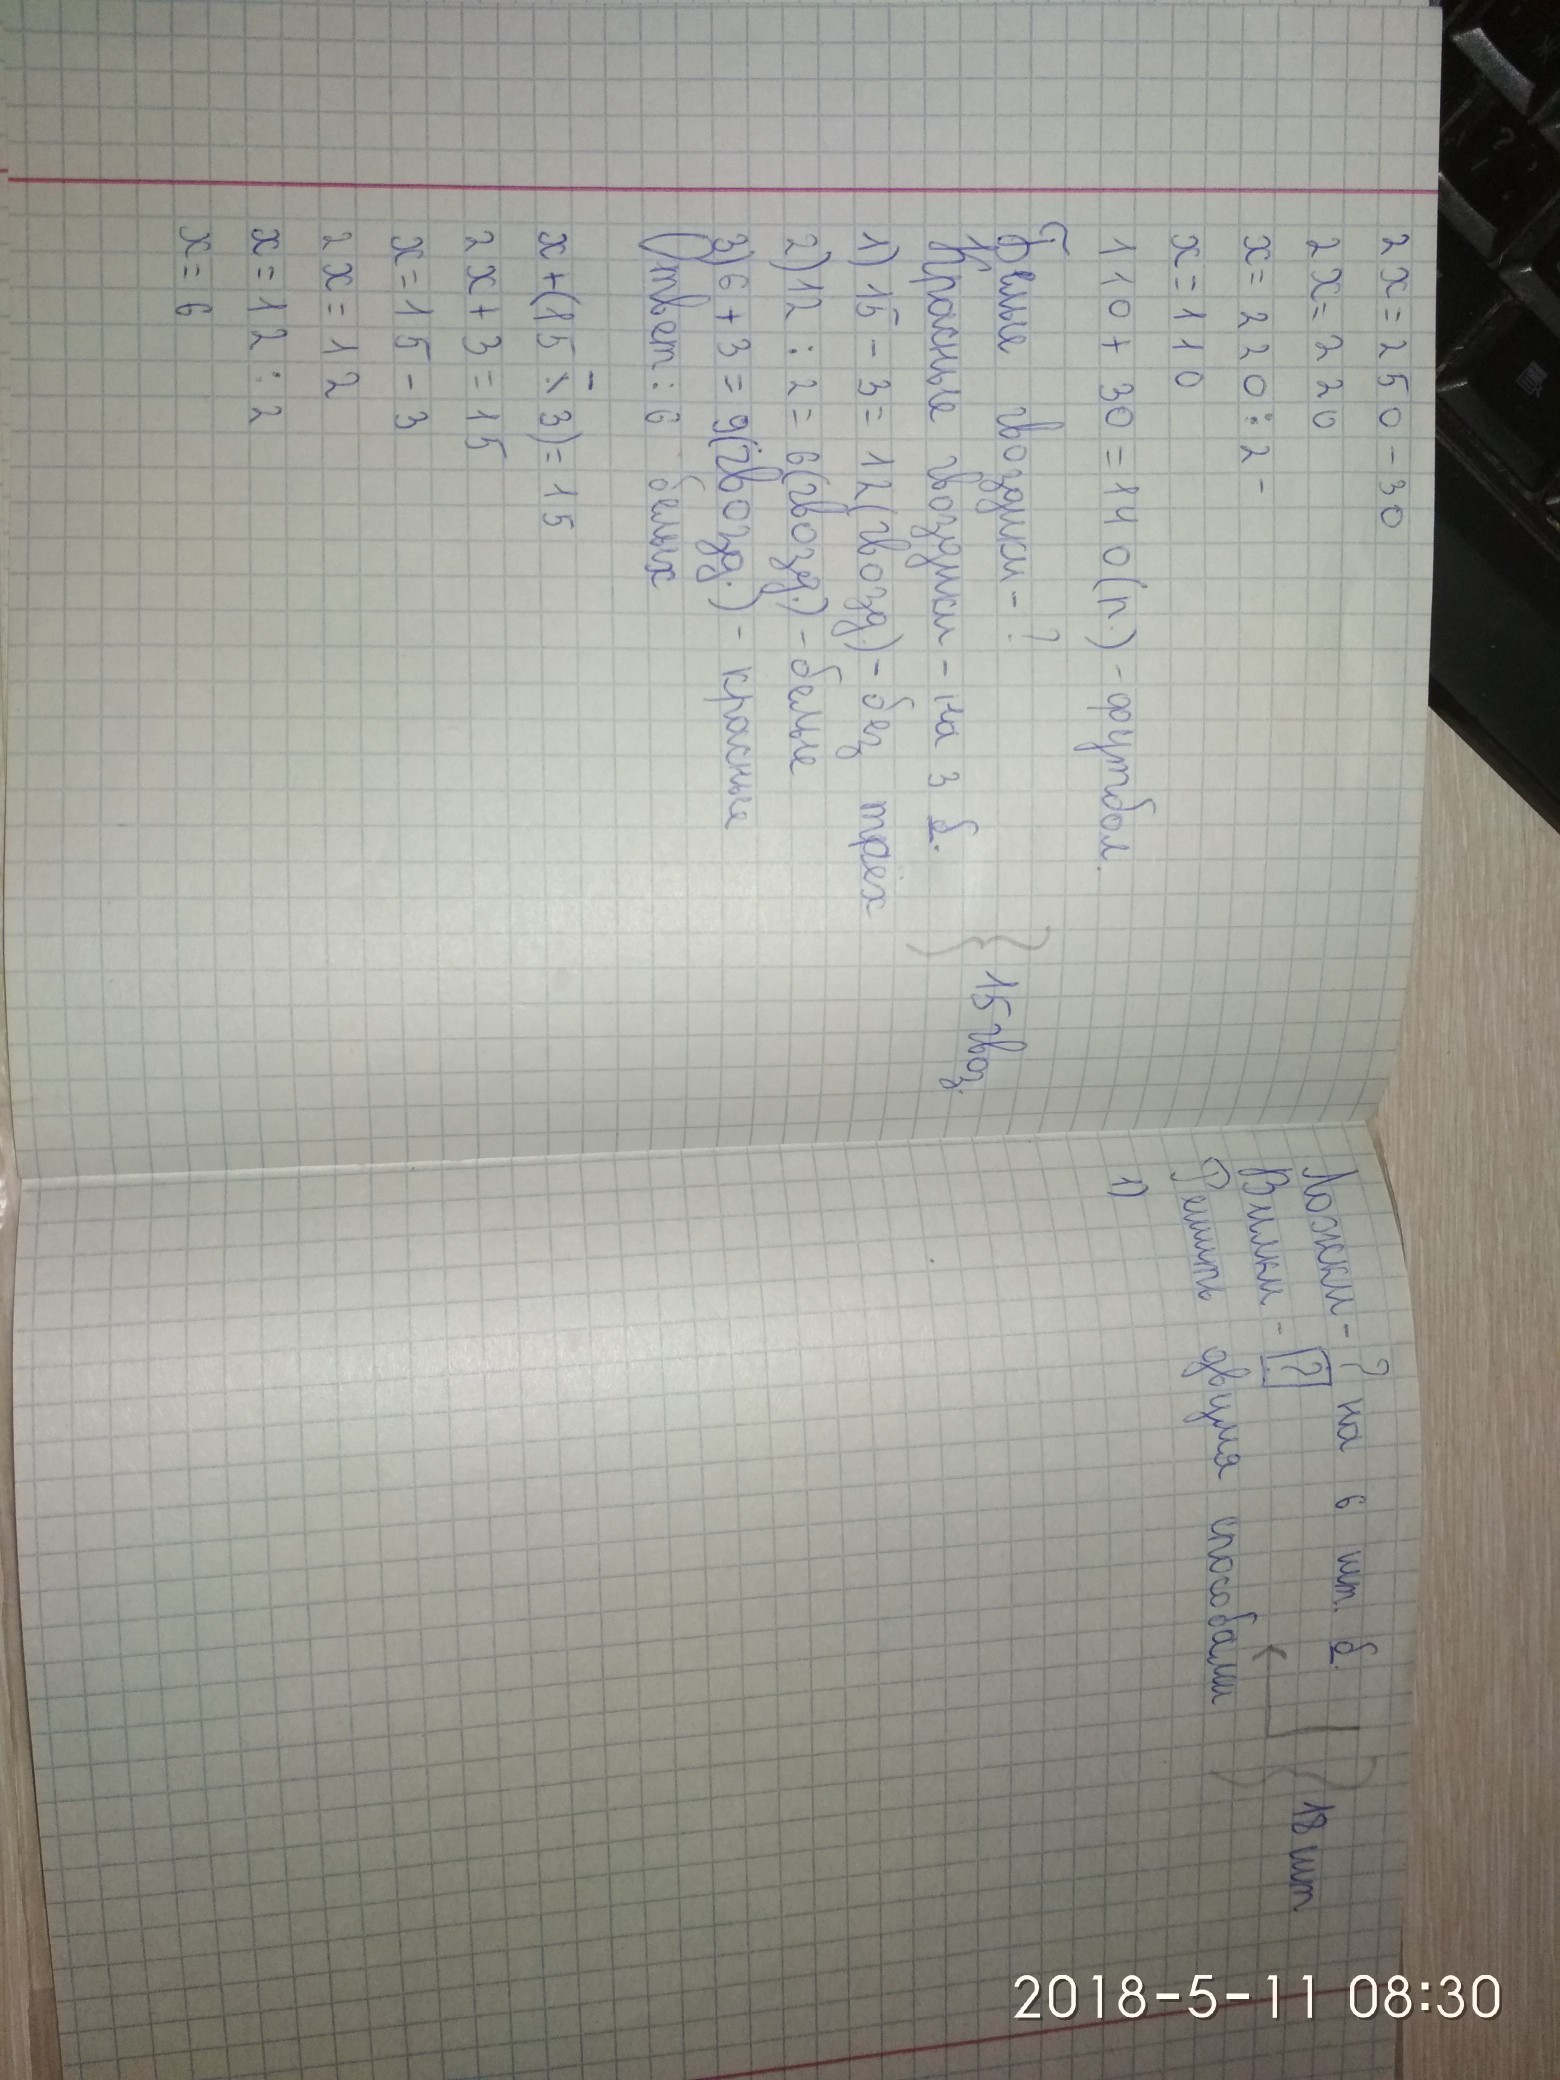 2x=250-30
2x=220
x=220:2-
x=110
110+30=140(п.)-футбол.
Белые гвоздики-?
Красные гвоздики-на 3 б.
} 15 гвоз.
1) 15-3=12(гвозд.)-без трёх
2) 12:2=6(гвозд.)-белые
3) 6+3=9(гвозд.)-красные
Ответ: 6 белых
x+(15 x 3)=15
2x+3=15
x=15-3
2x=12
x=12:2
x=6
Ложки-? на 6 шт. б.
Вилки-?
} 18 шт
Решить двумя способами
1)
2018-5-11 08:30